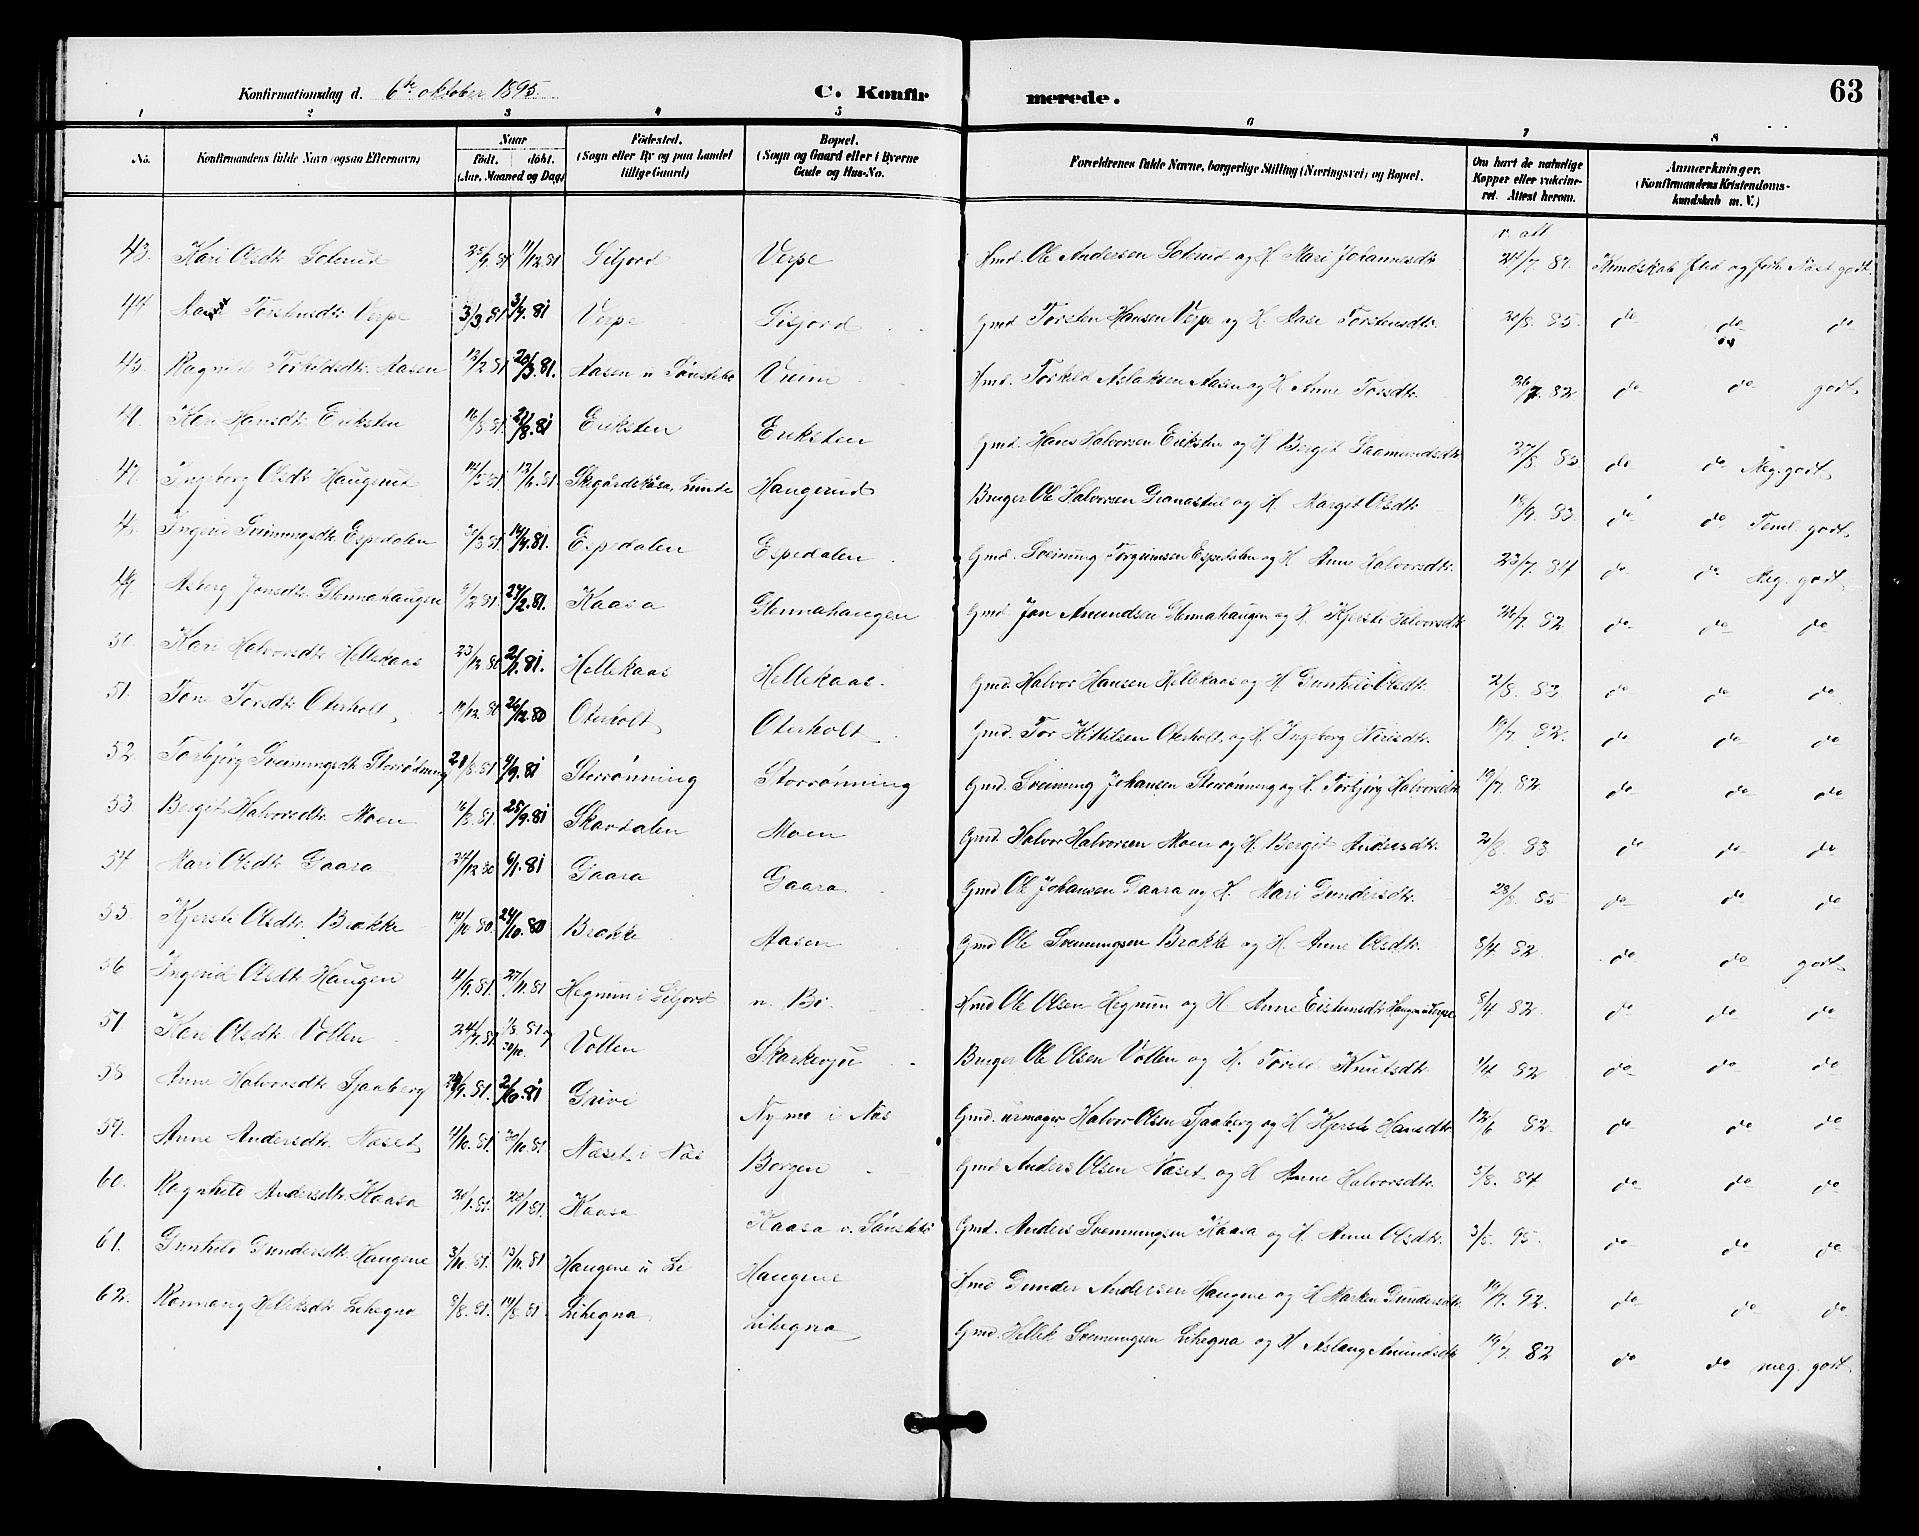 Konfirmationsdag d. 6te oktober 1895.
C. Konfirmerede.
63
1 2 3 4 5 6 7 8
No. Konfirmandens fulde Navn (ogsaa Efternavn)
Naar født. døbt. (Aar, Maaned og Dag)
Fødested. (Sogn eller By og paa Landet tillige Gaard)
Bopæl. (Sogn og Gaard eller i Byerne Gade og Hus-No.
Forældrenes fulde Navne, borgerlige Stilling (Næringsvei) og Bopæl.
Om havt de naturlige Kopper eller vakcineret. Attest herom.
Anmærkninger. (Konfirmandens Kristendomskundskab m. V.)
v. att
43. Kari Olsdtr 25/9 81 11/12 81 Siljord Verpe Hmd. Ole Andersen og H. Mari Johannesdtr 24/7. 87. Kundskab Flid og Forh. godt
44 Torstensdtr Verpe 3/3 81 3/4. 81 Verpe Siljord Gmd. Torsten Hansen Verpe og H. Aase Torstensdtr. 85. do do do
45. Torkildsdtr. Aasen 12/2 81 20/3. 81. Aasen Hmd. Torkild Aslaksen Aasen og H. Anne Torsdtr. 26/7. 82 do do godt
Hansdtr Eriksten 81. 21/8. 81 Eriksten Eriksten Gmd. Hans Halvorsen Eriksten og H. Bergit 27/8 83 do do Meg. godt
47. Ingeborg Olsdtr Haugerud 81. 81 Lunde Haugerud Bruger Ole Halvorsen og H. Marget Olsdtr 83. do do godt
Sveinungsdtr Espedalen 81. 81. Espedalen Espedalen Gmd. Sveinung Torgrimsen Espedalen og H. Anne Halvorsdtr. 23/7. 84 do do Meg. godt
49 Asberg Jonsdtr. Stennahaugen 81. 27/2. 81. Kaasa Stennahaugen Gmd. Jon Amundsen Stennahaugen og H. Kjersti Halvorsdtr 26/7. 82 do do do
50. Kari Halvorsdtr Hellekaas 23/12 80 81. Hellekaas Hellekaas. Gmd. Halvor Hansen Hellekaas og H. Gunhild Olsdtr. 2/8. 83 do do do
51. Tone Torsdtr Oterholt 80 26/12. 80 Oterholt Oterholt Gmd. Tor Kittilsen Oterholt og H. Ingeborg 82. do do do
52. Torbjørg Sveinungsdtr Storrønning 81 4/9. 81 Storrønning Storrønning Gmd. Sveinung Johansen Storrønning og H. Torbjørg Halvorsdtr 19/7. 82. do do do
53 Bergit Halvorsdtr. Moen 81. 25/9. 81 Skardalen Moen Gmd. Halvor Halvorsen Moen og H. Bergit Andersdtr. 83 do do do
54 Mari Olsdtr Gaara 24/12 80 6/1. 81 Gaara Gaara Gmd. Ole Johansen Gaara og H. Mari Gundersdtr. 85 do do do
55. Kjersti Olsdtr. Brække 80. 24/10. 80 Brække Aasen Gmd. Ole Sveinungsen Brække og H. Anne Olsdtr. 8/4 82. do do godt
56 Ingerid Olsdtr Haugen 4/9. 81. 27/11. 81 Hegnum i Siljord n. Bø. Hmd Ole Olsen Hegnum og H Anne Eistensdtr 8/4 82. do do do
57 Kari Olsdtr Vollen 24/7. 81. Vollen Bruger Ole Olsen Vollen og H. Knutsdtr. 82 do do do
58 Anne Halvorsdtr Sjaaberg 81. 2/10. 81 Grivi i Næs Gmd. urmager Halvor Olsen Sjaaberg og H. Kjersti Hansdtr. 12/6 82. do do do
59. Anne Andersdtr. Næset 81. 30/10. 81 Næset i Næs Borgen Gmd Anders Olsen Næset og H Anne Halvorsdtr. 5/8. 84 do do do
60. Ragnhild Andersdtr. Kaasa 81. 81. Kaasa Kaasa Gmd. Anders Sveinungsen Kaasa og H. Anne Olsdtr. 3/5. 95. do do do
61. Gunhild Gundersdtr. Haugene 3/10. 81. 13/11. 81 Haugene u Li Haugene Hmd Gunder Andersen Haugene og H. Maren Gundersdtr. 19/7. 92. do do do
62. Rønnaug Helleksdtr. Lihegna 81. 14/8. 81 Lihegna Lihegna Gmd. Hellek Sveinungsen Lihegna og H Aslaug Amundsdtr 19/7 82 do do meg. godt.